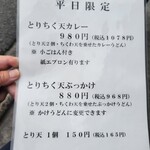 平日限定
とりちく天カレー
980円（税込1078円）
（とり天２個・ちくわ天を乗せたカレーうどん）
※ 小ごはん付き
紙エプロン有ります
とりちく天ぶっかけ
880円（税込968円）
（とり天２個・ちくわ天を乗せたぶっかけうどん）
※ かけうどんに変更できます
とり天１個 150円（税込163円）